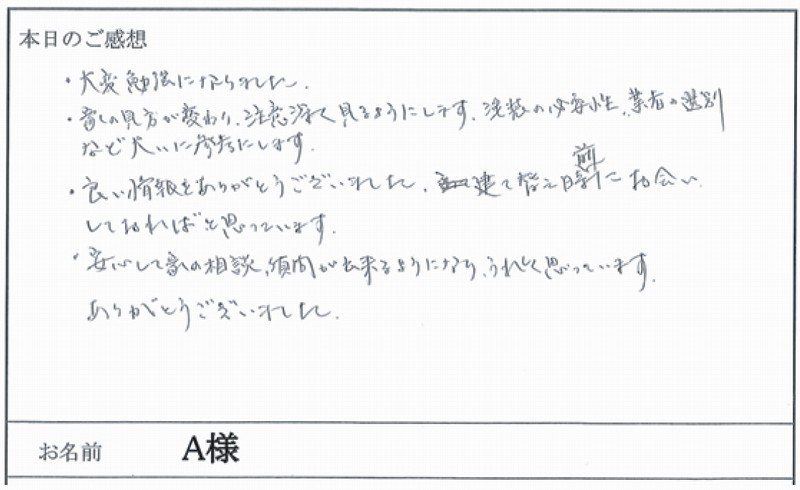 本日のご感想
・大変勉強になりました。
・家の見方が変わり、注意深く見るようにします。塗装の必要性、業者の選別
など大いに参考にします。
・良い情報をありがとうございました。建て替え時前にお会い
しておればと思っています。
・安心して家の相談、質問が出来るようになり、うれしく思っています。
ありがとうございました。
お名前 A様